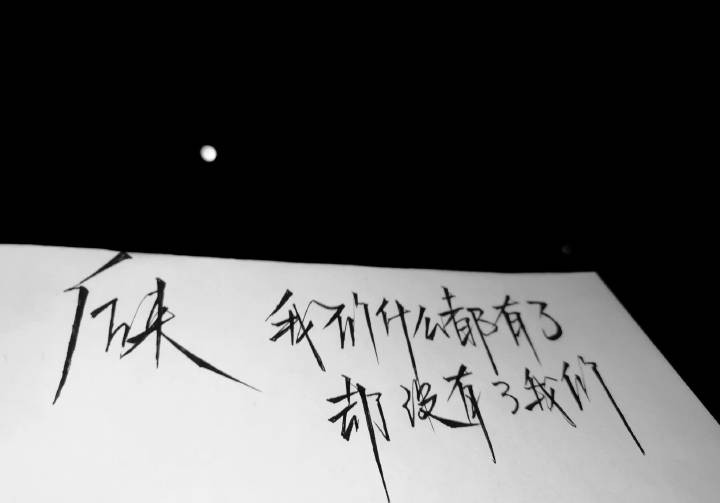 后来
我们什么都有了
却没有了我们